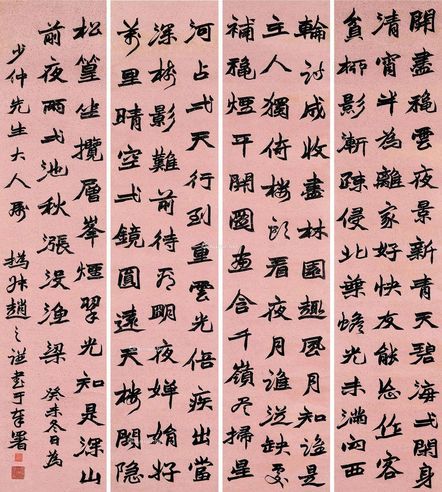 開盡穐雲夜景新青天碧海弌閑身
清宵半為離家好快友能忘作客
貧柳影漸疎侵北光未滿向西
輪詩成收盡林園趣風月知誰是
主人獨倚樓頭看夜月誰從缺處
補穐煙平開圖畫含千嶺尽掃星
河占弌天行到重雲光倍疾出當
深林影難前待君明夜嬋娟好
萬里晴空弌鏡圓遠天樓閣隱
松篁坐攬層峯煙翠光知是深山
前夜雨弌池秋漲没漁梁 癸未冬日為
少仲先生大人属 撝叔趙之謙書于奉署